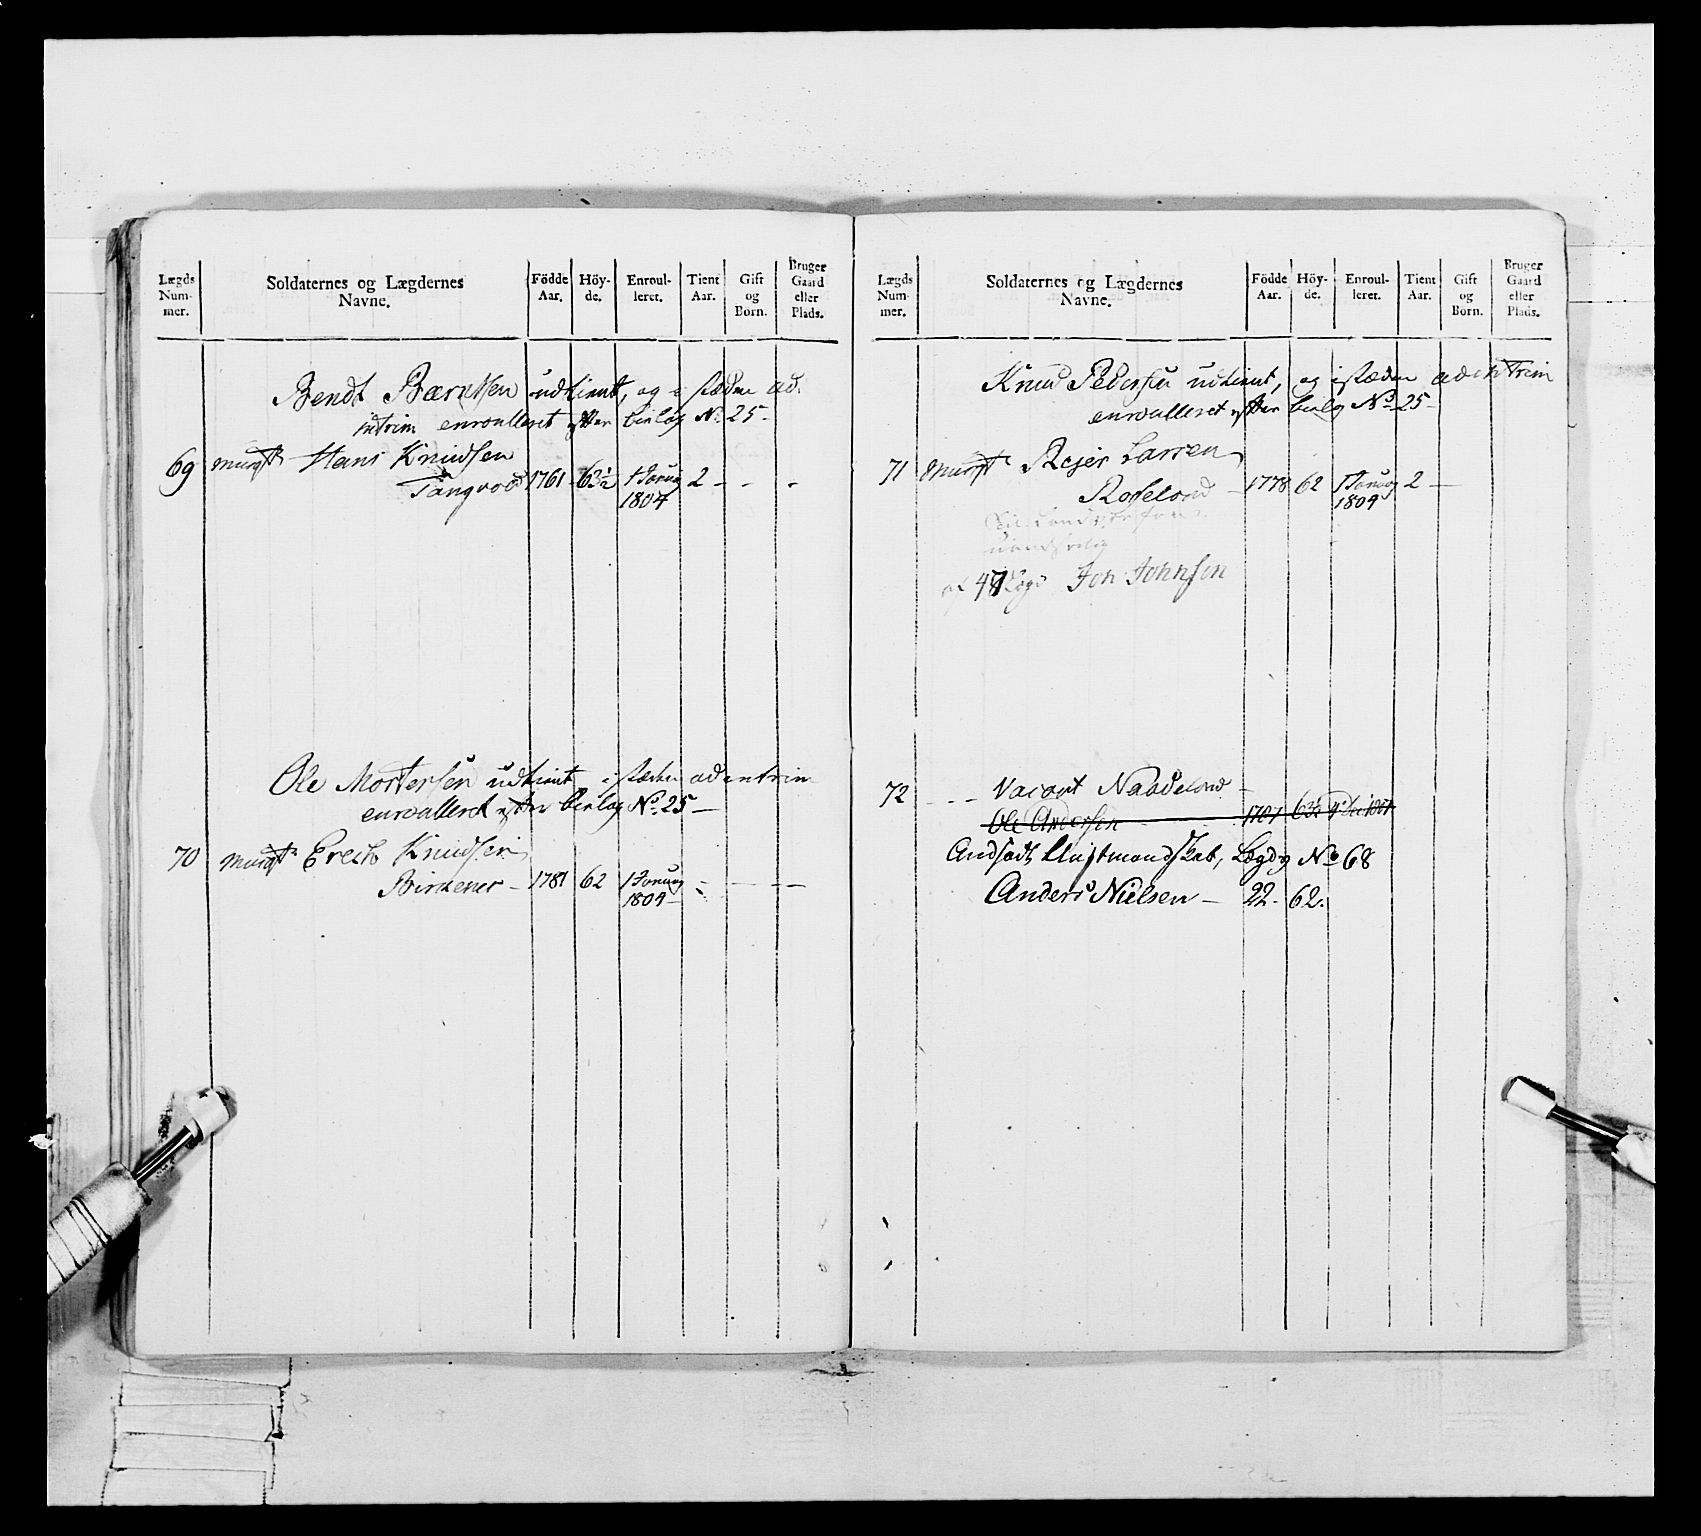 Lægds Num- mer.
Soldaternes og Lægdernes Navne.
Födde Aar.
Höy- de.
Enroul- leret.
Tient Aar.
Gift og Born.
Bruger Gaard eller Plads.
Bendt Bærntsen udtient, og i stæden ad.
intrim enroulleret efter bielag No. 25.
69 Hans Knudsen
Tangvod 1761 63½ 1 Januar 2 - - -
1804
Ole Mortersen udtient i stæden ad entrim
enroulleret efter bielag No. 25 —
70 Erech Knudsen
Birkener - 1781 62 1 Januar - - -
1804 -
Lægds Num- mer.
Soldaternes og Lægdernes Navne.
Födde Aar.
Höy- de.
Enroul- leret.
Tient Aar.
Gift og Born.
Bruger Gaard eller Plads.
Knud Pedersen udtient, og i stæden ad entrim
enroulleret efter bielag No. 25 -
71 Rejer Larsen
Roseland - 1778 62 1 Januar 2 -
1804
47 Jon Johnsen
72 - - - Vacant Naadeland -
Ole Andersen 1787 63½
Andsadt Lægds No 68
Anders Nielsen - 22. 62.